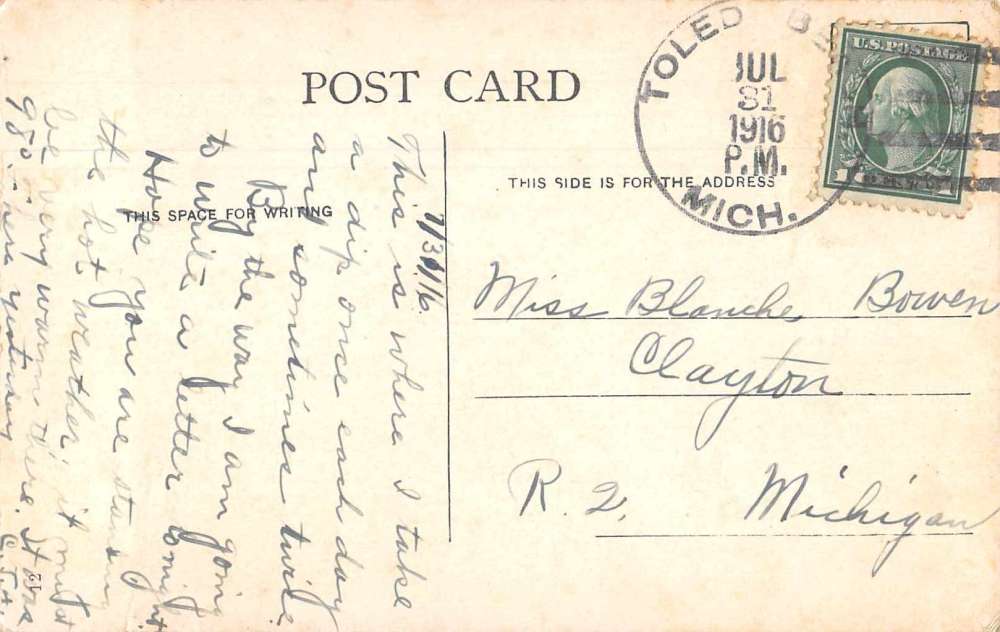 POST CARD
THIS SPACE FOR WRITING
THIS SIDE IS FOR THE ADDRESS
TOLED
MICH.
JUL
31
1916
P.M.
U.S. POSTAGE
1
7/31/16.
This is where I take
a dip once each day
and sometimes twice.
By the way I am going
to write a letter tonight
Hope you are standing
the hot weather, it must
be very warm there. It was
98° here yesterday
Miss Blanche Bowen
Clayton
R. 2. Michigan